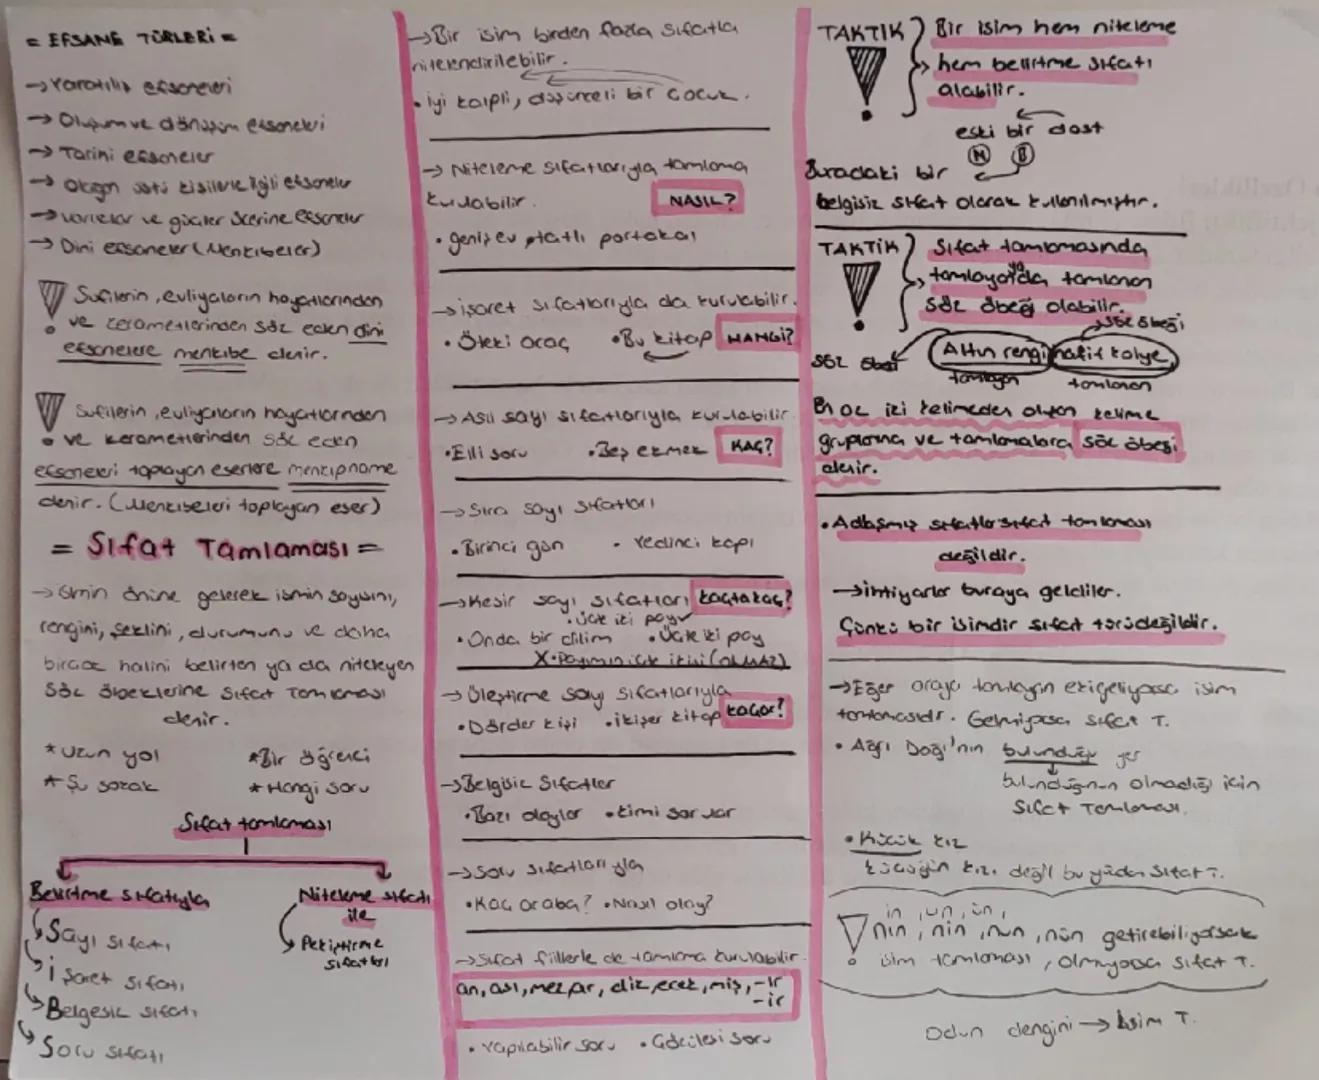 = EFSANE TÜRLERİ =
→ Yaratılış efsaneleri
→ Oluşum ve dönüşüm efsaneleri
→ Tarihi efsaneler
→ Olağan üstü kişilerle ilgili efsaneler
→ Varlıklar ve güçler üzerine efsaneler
→ Dini efsaneler (Menkıbeler)
Sufilerin, evliyaların hayatlarından
ve kerametlerinden söz eden dini
efsanelere menkıbe denir.
Sufilerin, evliyaların hayatlarından
ve kerametlerinden söz eden
efsaneleri toplayan eserlere menkıpname
denir. (Menkıbeleri toplayan eser)
= Sıfat Tamlaması =
→ İsmin önüne gelerek ismin sayısını,
rengini, şeklini, durumunu ve daha
birçok halini belirten ya da niteleyen
söz öbeklerine sıfat tamlaması
denir.
* Uzun yol * Bir öğrenci
* Şu sokak * Hangi soru
Sıfat tamlaması
Belirtme sıfatıyla
Sayı sıfatı
İşaret sıfatı
Belgesiz sıfatı
Soru sıfatı
Niteleme sıfatı
ile
Pekiştirme
sıfatları
→ Bir isim birden fazla sıfatla
nitelendirilebilir.
• İyi kalpli, düşünceli bir çocuk.
→ Niteleme sıfatlarıyla tamlama
kurulabilir. NASIL?
• geniş ev, tatlı portakal
→ işaret sıfatlarıyla da kurulabilir.
• Öteki araç • Bu kitap HANGİ?
→ Asıl sayı sıfatlarıyla kurulabilir
• Elli soru • Beş ekmek KAÇ?
→ Sıra sayı sıfatları
• Birinci gün • Yedinci kapı
→ Kesir sayı sıfatları kaçta kaç?
• üçte iki pay
• Onda bir dilim • Üçte iki pay
X • Payımın üçte ikisi (OLMAZ)
→ Üleştirme sayı sıfatlarıyla
• Dörder kişi • ikişer kitap kaçar?
→ Belgisiz Sıfatlar
• Bazı olaylar • kimi sorular
→ Soru sıfatlarıyla
• Kaç araba? • Nasıl olay?
→ Sıfat fiillerle de tamlama kurulabilir.
an, ası, mez, ar, dik, ecek, miş, -ır
-ir
• Yapılabilir soru • Gözülesi soru
TAKTİK Bir isim hem niteleme
hem belirtme sıfatı
alabilir.
eski bir dost
N B
Buradaki bir
belgisiz sıfat olarak kullanılmıştır.
TAKTİK Sıfat tamlamasında
tamlayan ya da tamlanan
söz öbeği olabilir.
söz öbeği
söz öbeği Altın rengi hafif kolye
tamlayan tamlanan
En az iki kelimeden oluşan kelime
gruplarına ve tamlamalara söz öbeği
denir.
• Adlaşmış sıfatlar sıfat tamlaması
değildir.
→ İhtiyarlar buraya geldiler.
Çünkü bir isimdir sıfat türü değildir.
→ Eğer araya tamlayan eki geliyorsa isim
tamlamasıdır. Gelmiyorsa sıfat T.
• Ağrı Dağı'nın bulunduğu yer
bulunduğunun olmadığı için
Sıfat Tamlaması.
• Küçük kız
küçüğün kızı değil bu yüzden Sıfat T.
in, un, ün,
nın, nin, nun, nün getirebiliyorsak
isim tamlaması, olmuyorsa sıfat T.
Odun dengini → İsim T.